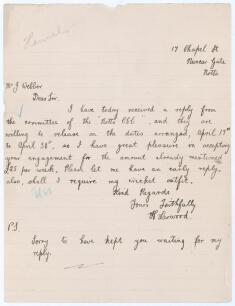 17 Chapel St
Notts
Mr J Webber
Dear Sir.
I have today received a reply from
the committee of the "Notts CCC", and they are
willing to release on the dates arranged, April 17th
to April 28th, so I have great pleasure in accepting
your engagement for the amount already mentioned
£25 per week. Please let me have an early reply.
also, shall I require my cricket outfit.
Kind Regards
Yours Faithfully
H Larwood.
P.S.
Sorry to have kept you waiting for my
reply.